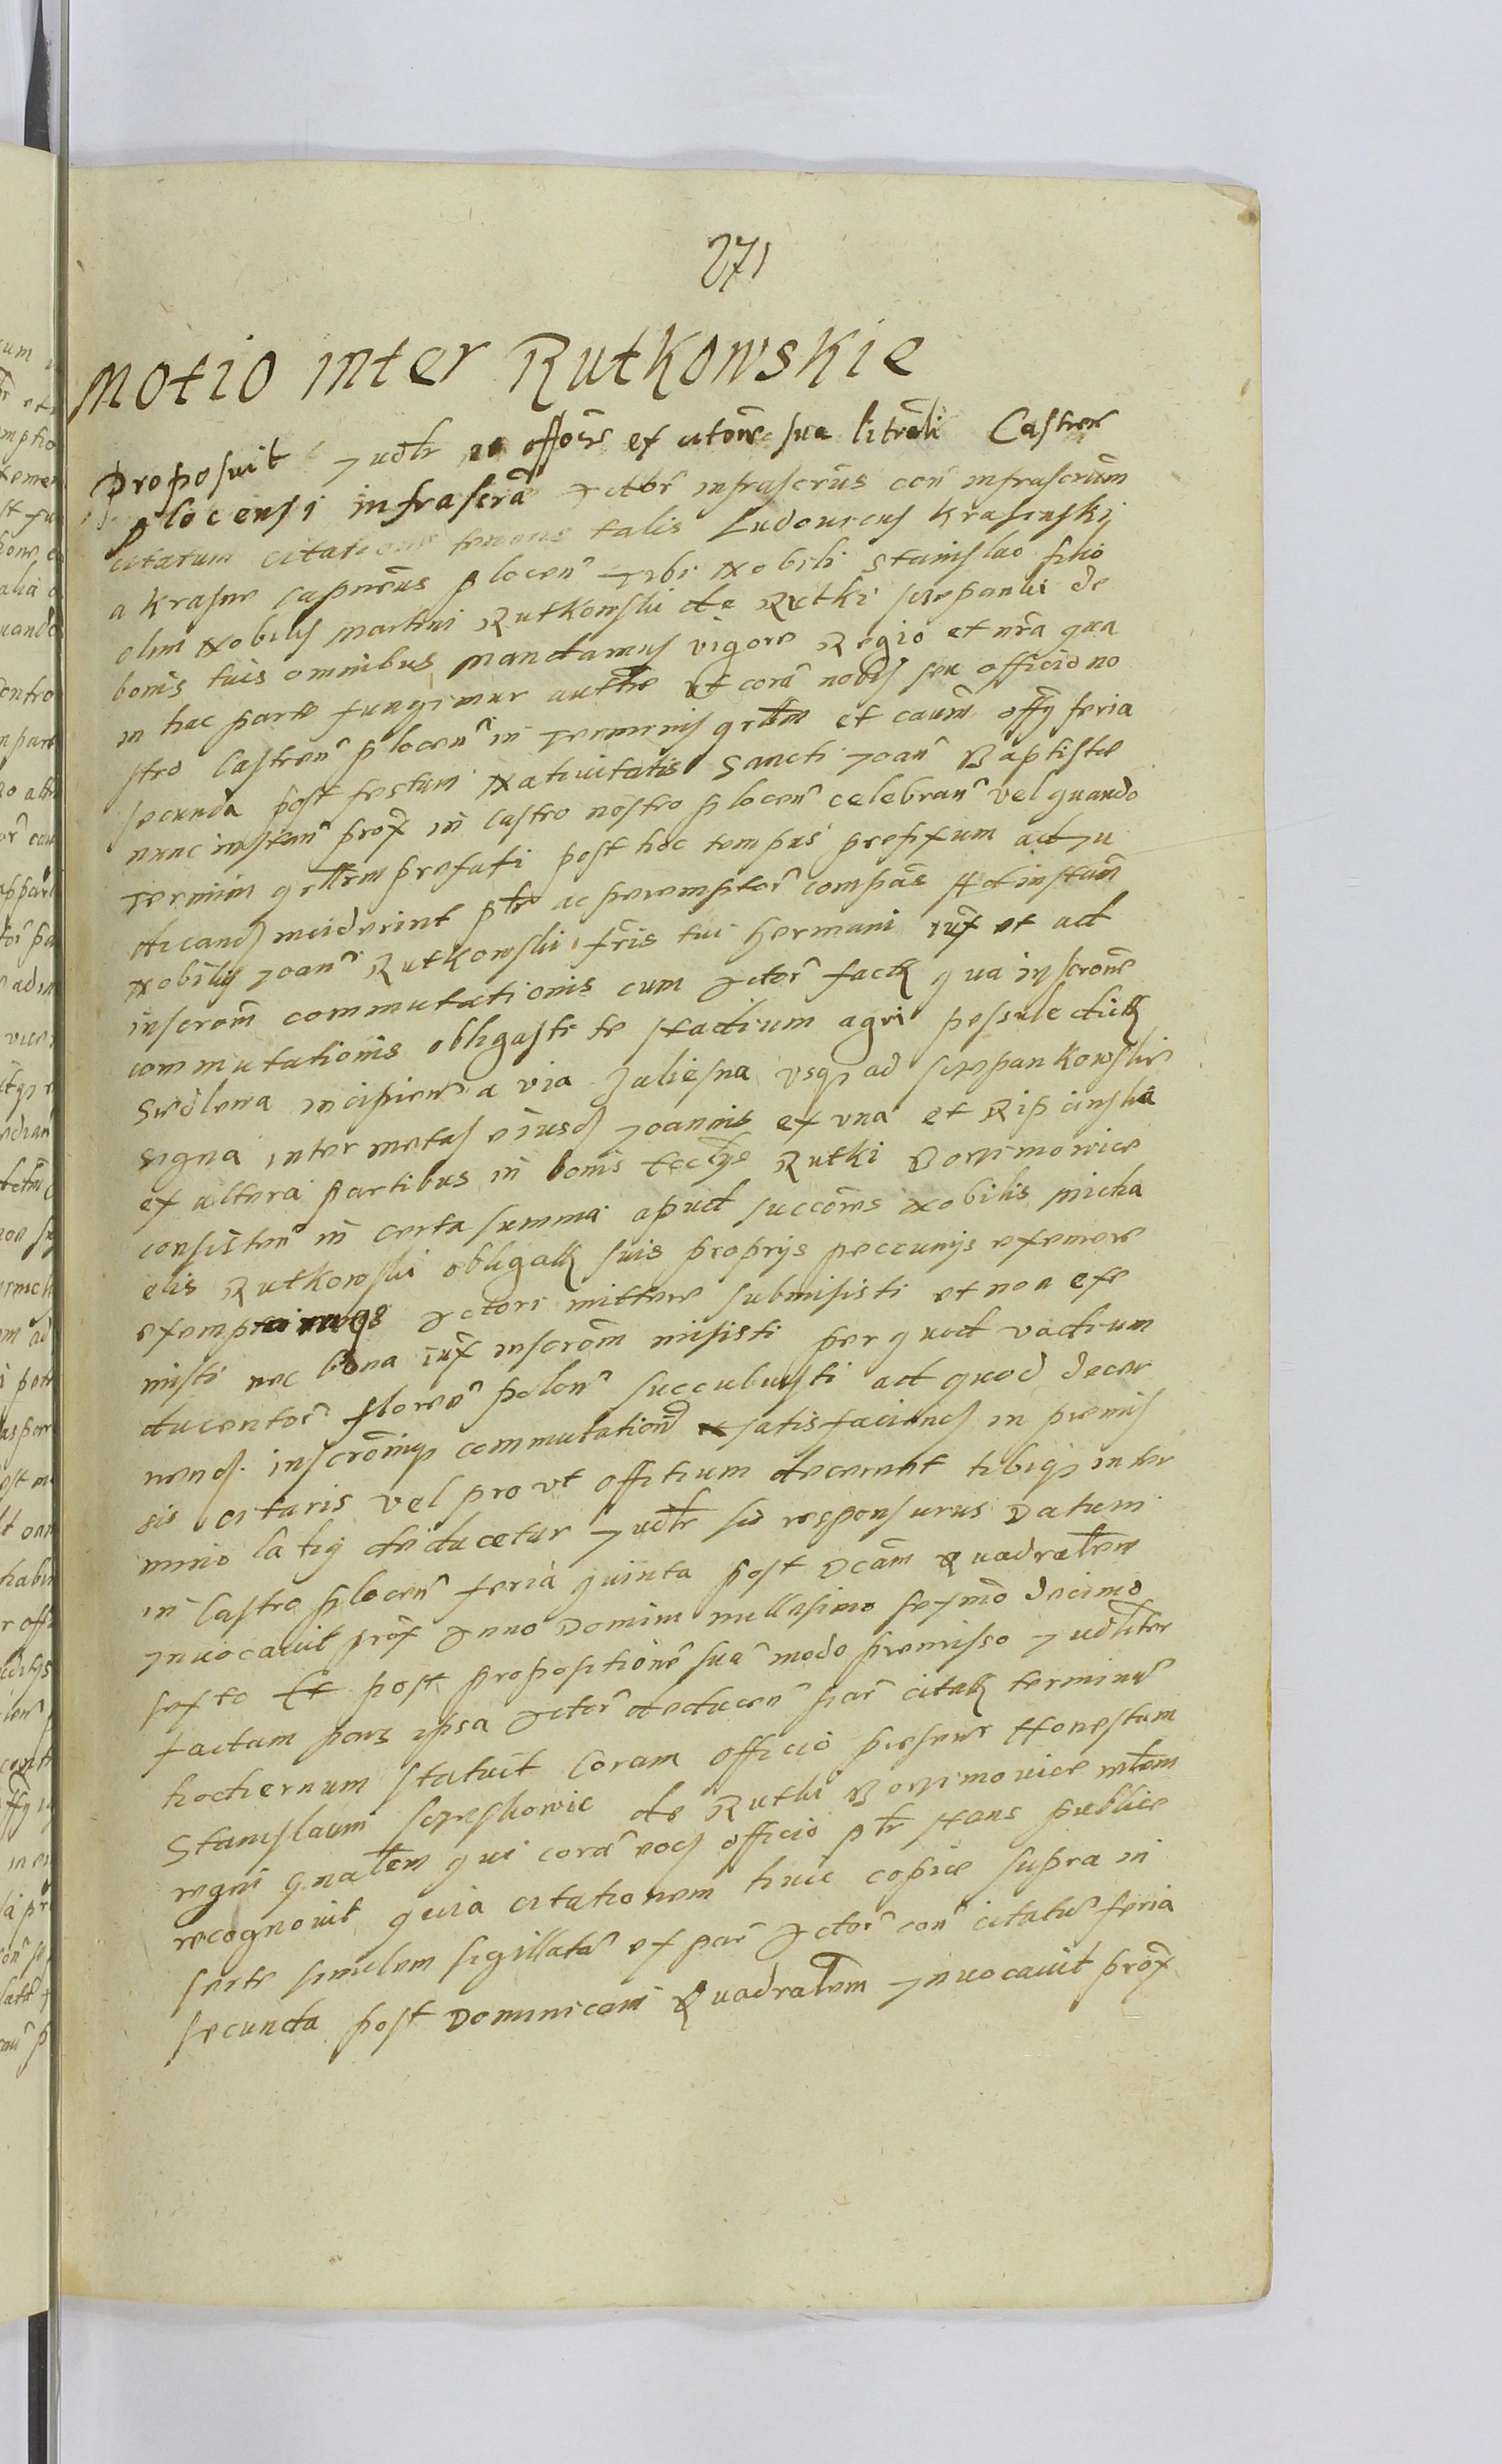 271
Motio inter Rutkowskie
Proposuit Judtr offose ex citone sua litrali Castren
plocensi infrascra Actor infrascrus con infrascrum
citatum citatione tenoris talis Ludouicus Krasinski
a Krasne capneus plocen Tibi Nobili Stanislao filio
olim Nobilis Martini Rutkowski de Rutki sczepanki de
bonis tuis omnibus mandamus vigore Regio et nra qua
in hac parte fungimur authe ut cora nobis seu officio no
stro Castren plocen in Terminis qrlm et caum offy feria
secunda post festum Natiuitatis Sancti Joan Baptiste
nunc instan prox in castro nostro plocen celebran vel quando
Termini qrllrm prefati post hoc tempus prefixum ad Ju
dicand inciderint ptr ac peremptor compas Ad instam
Nobilis Joan Rutkowski fris tui Germani iux et ad
inscrom commutationis cum Actor fact qua inscrone
commutationis obligasti te stadium agri pessule dict
Siedlewa incipien a via zaliesna vsq ad sczepankowskie
signa inter metas eiusd Joannis ex vna et Ripinska
ex altera partibus in bonis Rutki Borzimowice
consisten in certa summa apud succores Nobilis Micha
elis Rutkowski obligatt suis proprys peccunys eximere
exemptaq Actori mittere submisisti et non exe
misti nec bona iux inscrom misisti per quod vadium
ducentor floren polon succubuisti ad quod decer
nend. inscromq commutation satisfaciend in premis
sis citaris vel pro vt offitium decernet tibiq in ter
mino latiq deducetur Judtr sis responsurus Datum
in Castro plocen feria quinta post Dcam Quadralem
Inuocauit prox Anno Domini millesimo sexmo decimo
sexto Et post propositione sua modo premisso Judliter
factam pars ipsa Actor deducen par citatt terminu
hodiernum statuit Coram officio presen Honestum
Stanislaum de Rutki Borzimowice mlem
regni gnalem qui cora eod officio ptr stans publice
recognouit quia citationem huic copie supra in
serte similem sigillata ex par Actor con citatu feria
secunda post Dominicam Quadralem Inuocauit prox